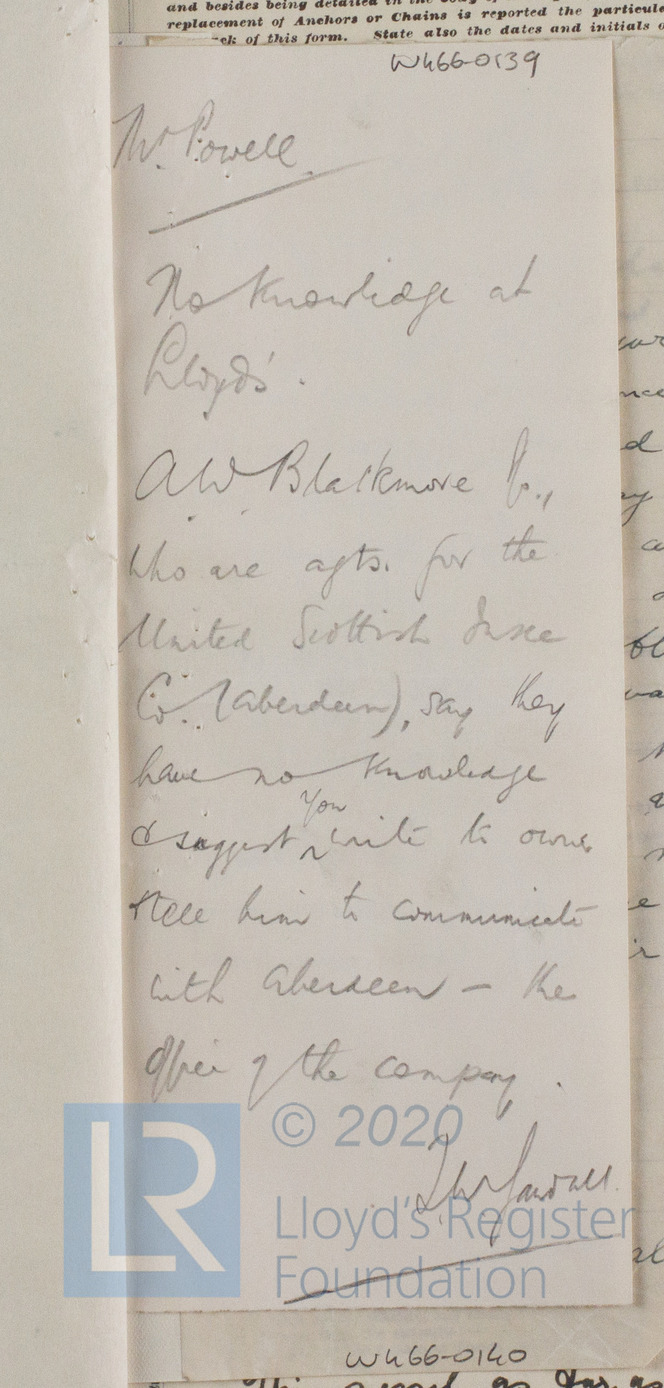 and besides being detailed in the body of
replacement of Anchors or Chains is reported the particula
of this form. State also the dates and initials o
W466-0139
Mr. Powell
No knowledge at
Lloyds'.
A W Blackmore
who are agts. for the
United Scottish Insce
Co. (Aberdeen), say they
have no knowledge
& suggest you write to owner
& tell him to communicate
with Aberdeen — the
office of the company.
LR
© 2020
Lloyd's Register
Foundation
W466-0140